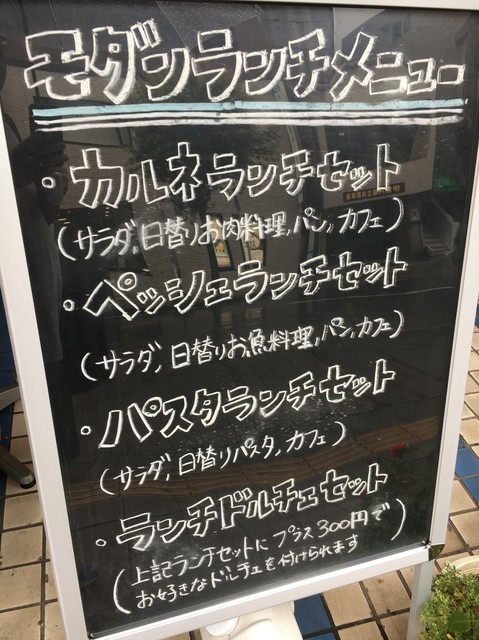 モダンランチメニュー
・カルネランチセット
(サラダ,日替りお肉料理,パン,カフェ)
・ペッシェランチセット
(サラダ,日替りお魚料理,パン,カフェ)
・パスタランチセット
(サラダ,日替りパスタ,カフェ)
・ランチドルチェセット
(上記ランチセットにプラス300円で
お好きなドルチェを付けられます)